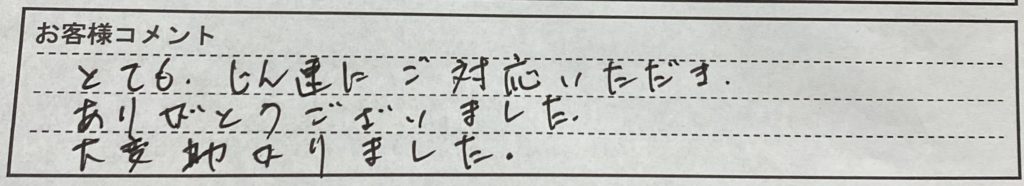 お客様コメント
とても、じん速にご対応いただき、
ありがとうございました。
大変助よりました。